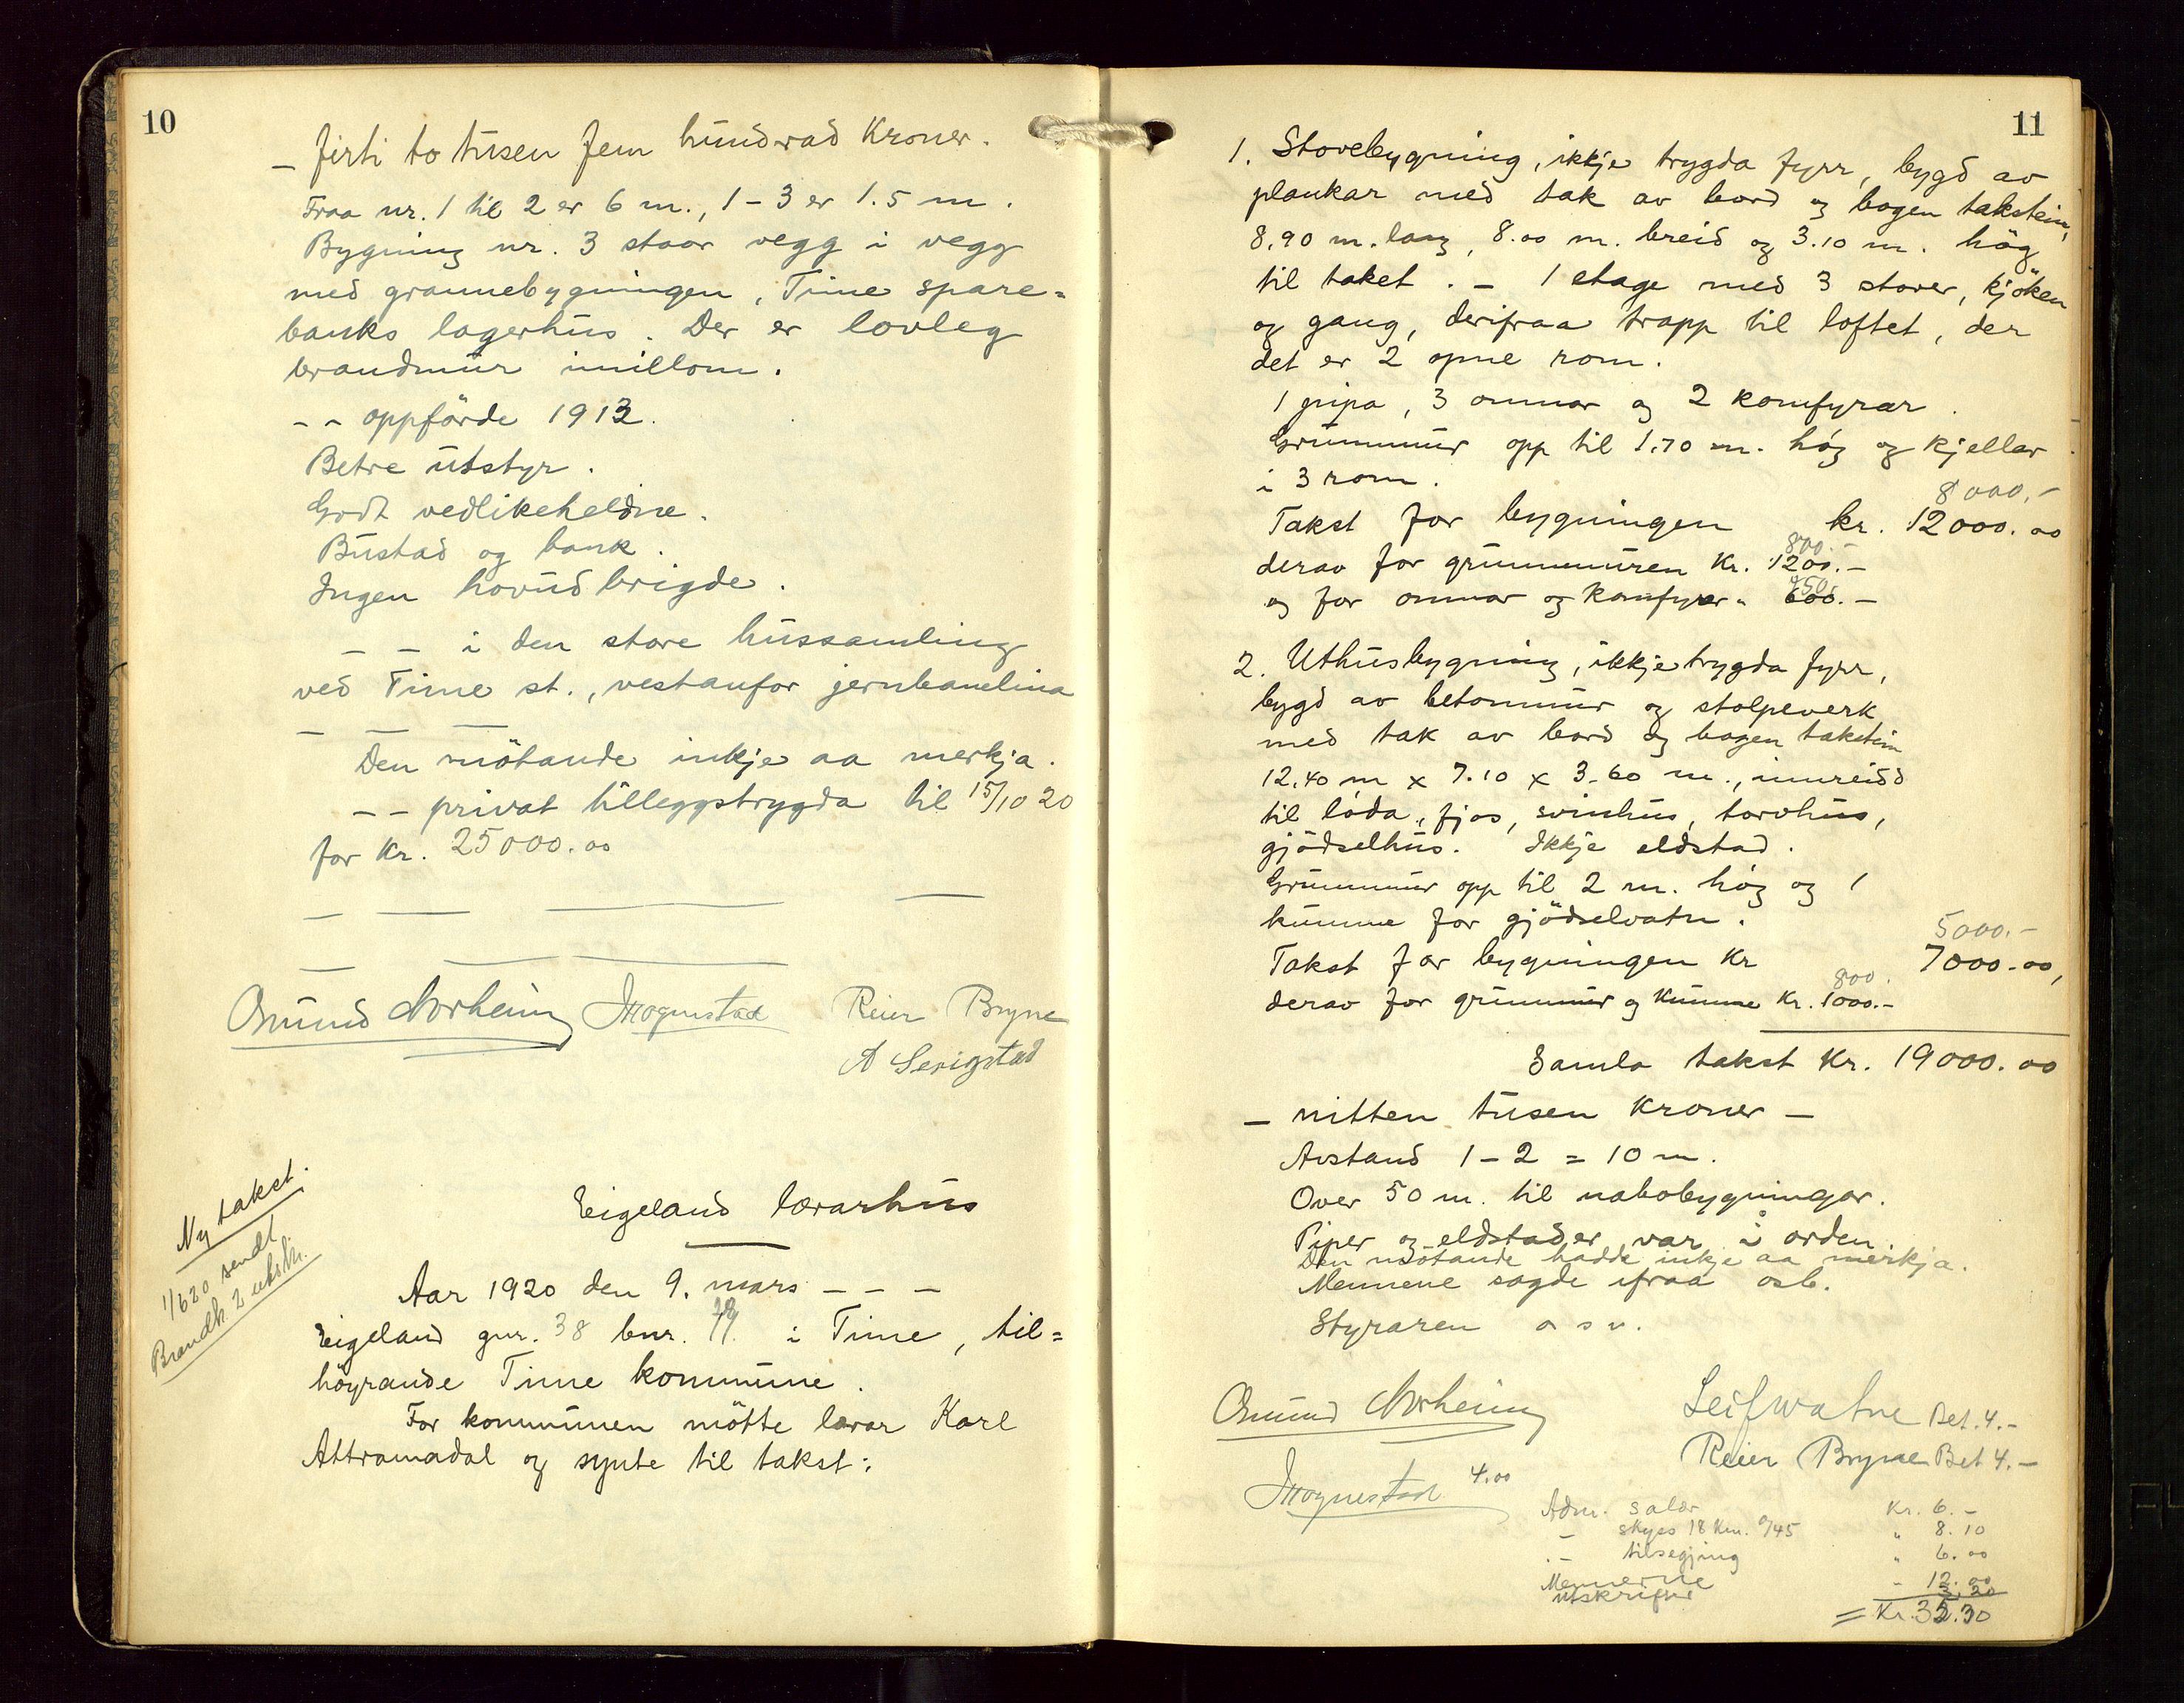 10
- firti to tusen fem hundrad Kroner.
Fraa nr. 1 til 2 er 6 m., 1-3 er 1.5 m.
Bygning nr. 3 staar vegg i vegg
med grannebygningen, Time spare=
banks lagerhus. Der er lovleg
brandmur imillom.
- - oppförde 1913.
Betre utstyr.
Godt vedlikeheldne.
Bustad og bank.
Ingen hovudbrigde.
- - i den store hussamling
ved Time st., vestanfor jernbanelina
- -
Den mötande inkje aa merkja.
- - privat tilleggstrygda til 15/10 20
for Kr. 25000.00
Osmund Norheim Reier Bryne
A Serigstad
Eigeland lærarhus
Ny takst.
1/6 20 sendt
Brandk. 2 utskr.
Aar 1920 den 9. mars - - -
Eigeland gnr. 38 bnr. i Time, til=
höyrande Time kommune.
For kommunen mötte lærar Karl
Attramadal og synte til takst:
11
1. Stovebygning, ikkje trygda fyrr, bygd av
plankar med tak av bord og bogen takstein,
8.90 m. lang, 8.00 m. breid og 3.10 m. hög
til taket. - 1 etage med 3 stover, kjöken
og gang, derifraa trapp til loftet, der
det er 2 opne rom.
1 pipa, 3 omnar og 2 komfyrar.
Grunnmur opp til 1.70 m. hög og kjellar
i 3 rom.
8000.-
Takst for bygningen kr. 12000.00
800.-
derav for grunnmuren Kr. 1200.-
og for omnar og Komfyrar " 600.-
2. Uthusbygning, ikkje trygda fyrr,
bygd av betonmur og stolpeverk
med tak av bord og bogen takstein
12.40 m x 7.10 x 3.60 m., innreidd
til löda, fjos, svinhus, torvhus,
gjödselhus. Ikkje eldstad.
Grunnmur opp til 2 m. hög og 1
kumme for gjödselvatn.
5000.-
Takst for bygningen Kr 7000.00,
800.
derav for grunnmur og Kumme Kr. 1000.-
Samla takst Kr. 19000.00
- nitten tusen Kroner -
Avstand 1-2 = 10 m.
Over 50 m. til nabobygningar.
Piper og eldstader var i orden.
Den mötande hadde inkje aa merkja.
Mennene sagde ifraa osb.
Styraren o s v.
Osmund Norheim Leif Watne Bet. 4.-
Reier Bryne Bet 4.-
4.00
Adm. salær Kr. 6.-
- skyss 18 Km. a/45 " 8.10
- tilsegjing " 6.00
Mennerne - 12.00
utskrifter 3.20
= Kr. 35.30